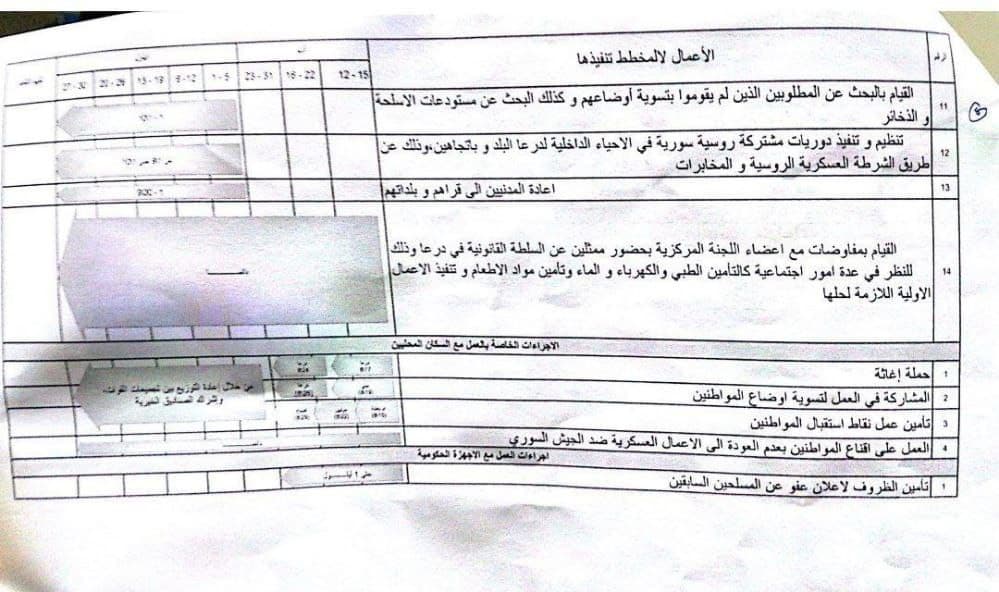 رقم
الأعمال لالمخطط تنفيذها
آب
12 - 15
16 - 22
23 - 31
أيلول
1 - 5
6 - 12
13 - 19
20 - 26
27 - 30
11
القيام بالبحث عن المطلوبين الذين لم يقوموا بتسوية أوضاعهم و كذلك البحث عن مستودعات الاسلحة
و الذخائر
12
تنظيم و تنفيذ دوريات مشتركة روسية سورية في الاحياء الداخلية لدرعا البلد و باتجاهين،وذلك عن
طريق الشرطة العسكرية الروسية و المخابرات
13
اعادة المدنيين الى قراهم و بلداتهم
14
القيام بمفاوضات مع اعضاء اللجنة المركزية بحضور ممثلين عن السلطة القانونية في درعا وذلك
للنظر في عدة امور اجتماعية كالتأمين الطبي والكهرباء و الماء وتأمين مواد الاطعام و تنفيذ الاعمال
الاولية اللازمة لحلها
الاجراءات الخاصة بالعمل مع السكان المحليين
1
حملة إغاثة
2
المشاركة في العمل لتسوية اوضاع المواطنين
3
تأمين عمل نقاط استقبال المواطنين
من خلال إعادة التوزيع بين تجميعات القوات،
وشراك الصناديق الخيرية
4
العمل على اقناع المواطنين بعدم العودة الى الاعمال العسكرية ضد الجيش السوري
اجراءات العمل مع الأجهزة الحكومية
1
تأمين الظروف لاعلان عفو عن المسلحين السابقين
حتى 1 أيلـــــول